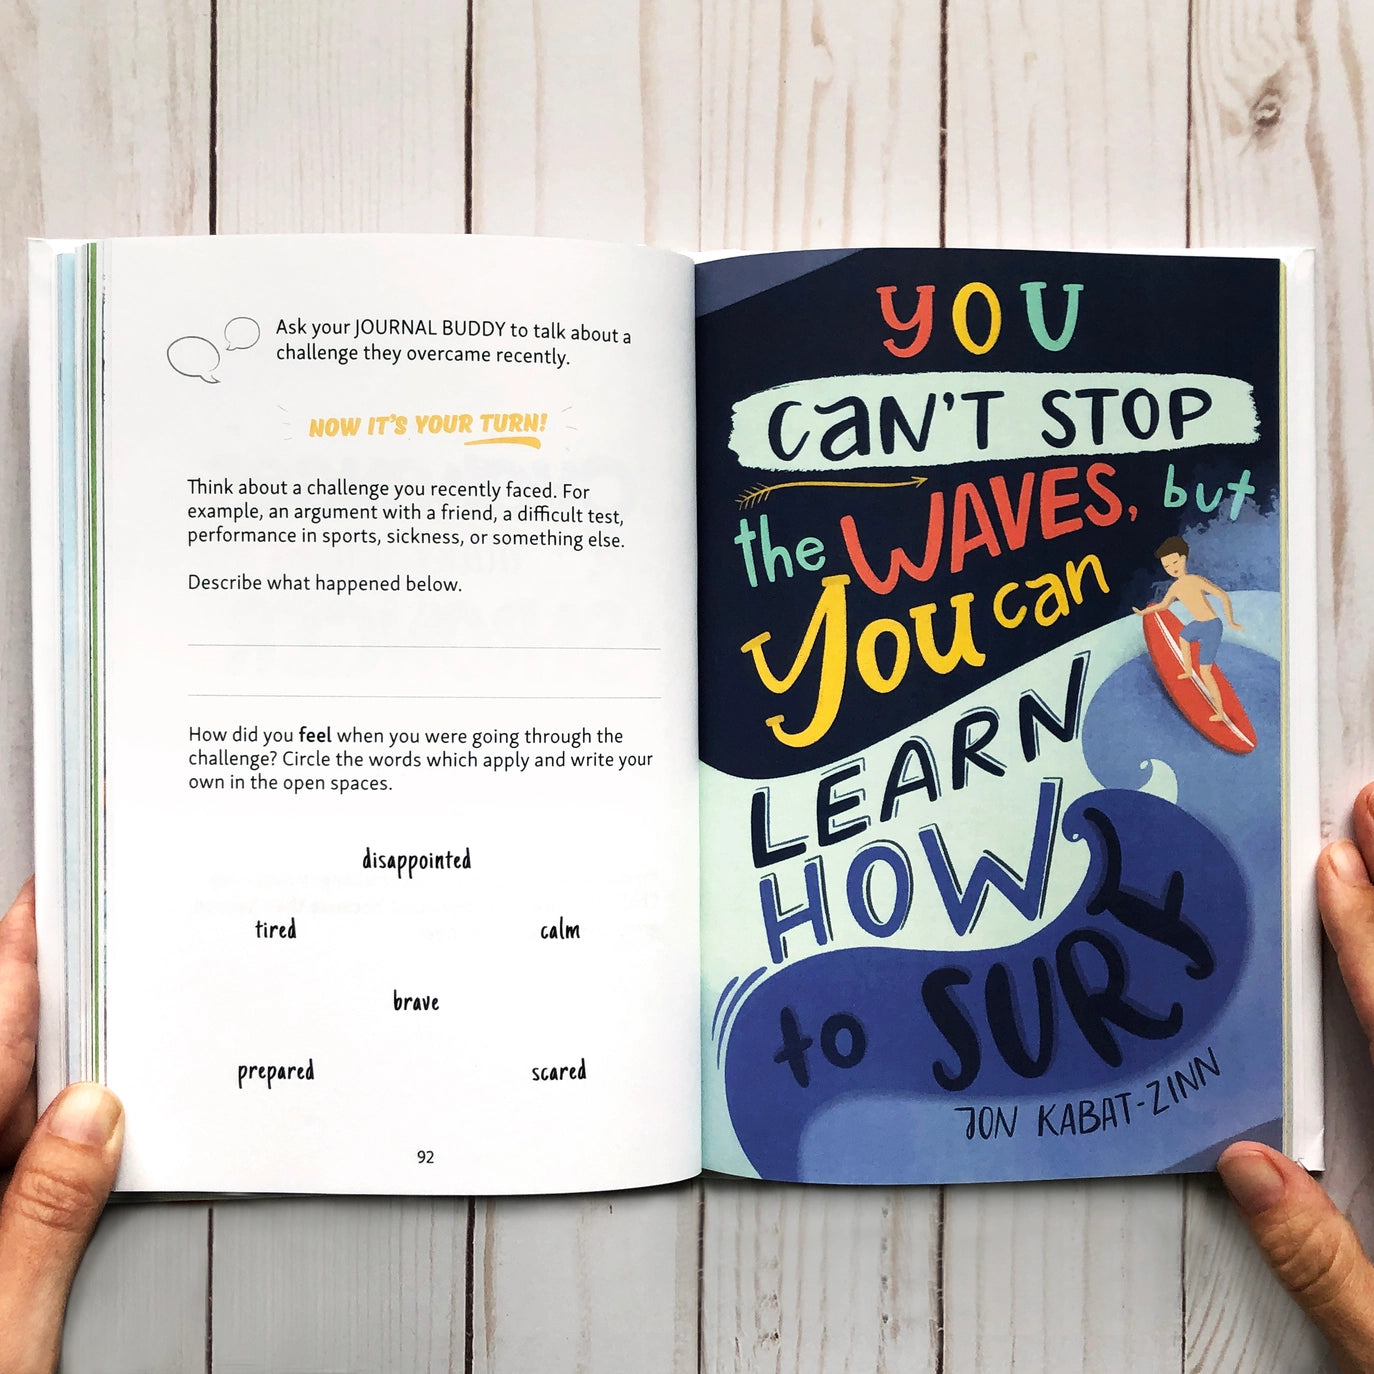 Ask your JOURNAL BUDDY to talk about a
challenge they overcame recently.
NOW IT'S YOUR TURN!
Think about a challenge you recently faced. For
example, an argument with a friend, a difficult test,
performance in sports, sickness, or something else.
Describe what happened below.
How did you feel when you were going through the
challenge? Circle the words which apply and write your
own in the open spaces.
disappointed
tired calm
brave
prepared scared
92
YOU
CAN'T STOP
the WAVES, but
You can
LEARN
HOW
to SURF
JON KABAT-ZINN